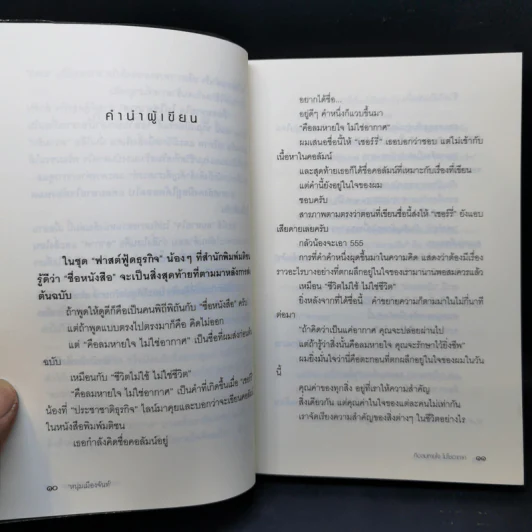 คำนำผู้เขียน
ในชุด "ฟาสต์ฟู้ดธุรกิจ" น้องๆ ที่สำนักพิมพ์มติชน
รู้ดีว่า "ชื่อหนังสือ" จะเป็นสิ่งสุดท้ายที่ตามมาหลังการส่ง
ต้นฉบับ
ถ้าพูดให้ดูดีก็คือเป็นคนพิถีพิถันกับ "ชื่อหนังสือ" ครับ
แต่ถ้าพูดแบบตรงไปตรงมาก็คือ คิดไม่ออก
แต่ "คือลมหายใจ ไม่ใช่อากาศ" เป็นชื่อที่ผมส่งก่อนต้น
ฉบับ
เหมือนกับ "ชีวิตไม่ใช้ ไม่ใช่ชีวิต"
"คือลมหายใจ ไม่ใช่อากาศ" เป็นคำที่เกิดขึ้นเมื่อ "เชอร์รี่"
น้องที่ "ประชาชาติธุรกิจ" ไลน์มาคุยและบอกว่าจะเขียนคอลัมน์
ในหนังสือพิมพ์มติชน
เธอกำลังคิดชื่อคอลัมน์อยู่
๑๐ หนุ่มเมืองจันท์
อยากได้ชื่อ...
อยู่ดีๆ คำหนึ่งก็แวบขึ้นมา
"คือลมหายใจ ไม่ใช่อากาศ"
ผมเสนอชื่อนี้ให้ "เชอร์รี่" เธอบอกว่าชอบ แต่ไม่เข้ากับ
เนื้อหาในคอลัมน์
และสุดท้ายเธอก็ได้ชื่อคอลัมน์ที่เหมาะกับเรื่องที่เขียน
แต่คำนี้ยังอยู่ในใจของผม
ชอบครับ
สารภาพตามตรงว่าตอนที่เขียนชื่อนี้ส่งให้ "เชอร์รี่" ยังแอบ
เสียดายเลยครับ
กลัวน้องจะเอา 555
การที่คำคำหนึ่งผุดขึ้นมาในความคิด แสดงว่าต้องมีเรื่อง
ราวอะไรบางอย่างที่ตกผลึกอยู่ในใจของเรามานานพอสมควรแล้ว
เหมือน "ชีวิตไม่ใช้ ไม่ใช่ชีวิต"
ยิ่งหลังจากที่ได้ชื่อนี้ คำขยายความก็ตามมาในไม่กี่นาที
ต่อมา
"ถ้าคิดว่าเป็นแค่อากาศ คุณจะปล่อยผ่านไป
แต่ถ้ารู้ว่าสิ่งนั้นคือลมหายใจ คุณจะรักษาไว้ยิ่งชีพ"
ผมยิ่งมั่นใจว่านี่คือตะกอนที่ตกผลึกอยู่ในใจของผมในวัน
นี้
คุณค่าของทุกสิ่ง อยู่ที่เราให้ความสำคัญ
สิ่งเดียวกัน แต่คุณค่าในใจของแต่ละคนไม่เท่ากัน
เราจัดเรียงความสำคัญของสิ่งต่างๆ ในชีวิตอย่างไร
คือลมหายใจ ไม่ใช่อากาศ ๑๑